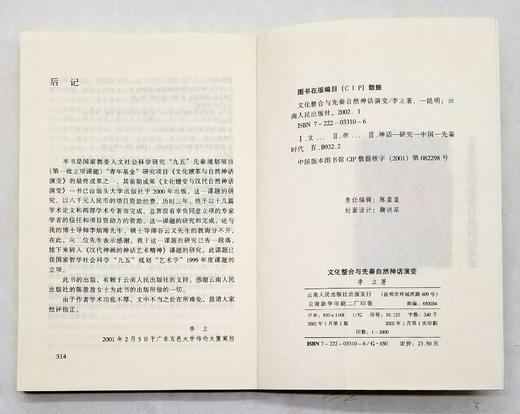 后记
本书是国家教委人文社会科学研究“九五”先秦规划项目
(第一批立项课题)“青年基金”研究项目《文化嬗革与自然神话
演变》的最终成果之一，其前期成果《文化嬗变与汉代自然神话
演变》一书已由汕头大学出版社于2000年出版。这一课题的研
究，以八千元人民币的项目资助经费，历时三年，终于以十九篇
学术论文和两部学术专著而完成，总算没有辜负同意立项的专家
学者的信任和项目资助方的资助。这一课题的研究和完成，还与
我的博士导师李炳海先生、硕士导师谷云义先生的教诲分不开，
在此，向二位先生表示感谢。我于这一课题的研究已告一段落，
接下来转入《汉代神画的神话艺术精神》课题的研究。此课题已
获我国家哲学社会科学“九五”规划“艺术学”1999年度课题的
立项。
此书的出版，有赖于云南人民出版社的支持。感谢云南人民
出版社的陈盈盈女士为此书的出版所做的一切。
由于作者学术功底不厚，文中不当之处在所难免，恳请大家
批评指正。
李立
2001年2月5日于广东五邑大学伟伦大厦寓所
314
图书在版编目(CIP)数据
文化整合与先秦自然神话演变/李立著. —昆明：云
南人民出版社，2002.1
ISBN 7-222-03310-6
Ⅰ.文… Ⅱ.李… Ⅲ.神话—研究—中国—先秦
时代 Ⅳ.B932.2
中国版本图书馆CIP数据核字(2001)第082298号
责任编辑：陈盈盈
封面设计：鞠洪深
文化整合与先秦自然神话演变
李立著
云南人民出版社出版发行 (昆明市环城西路609号)
云南新华印刷二厂印装 邮编：650034
开本：850×1168 1/32 印张：10.125 字数：240千
2002年1月第1版 2002年1月第1次印刷
印数：1-2000
ISBN 7-222-03310-6/G·650 定价：23.50元